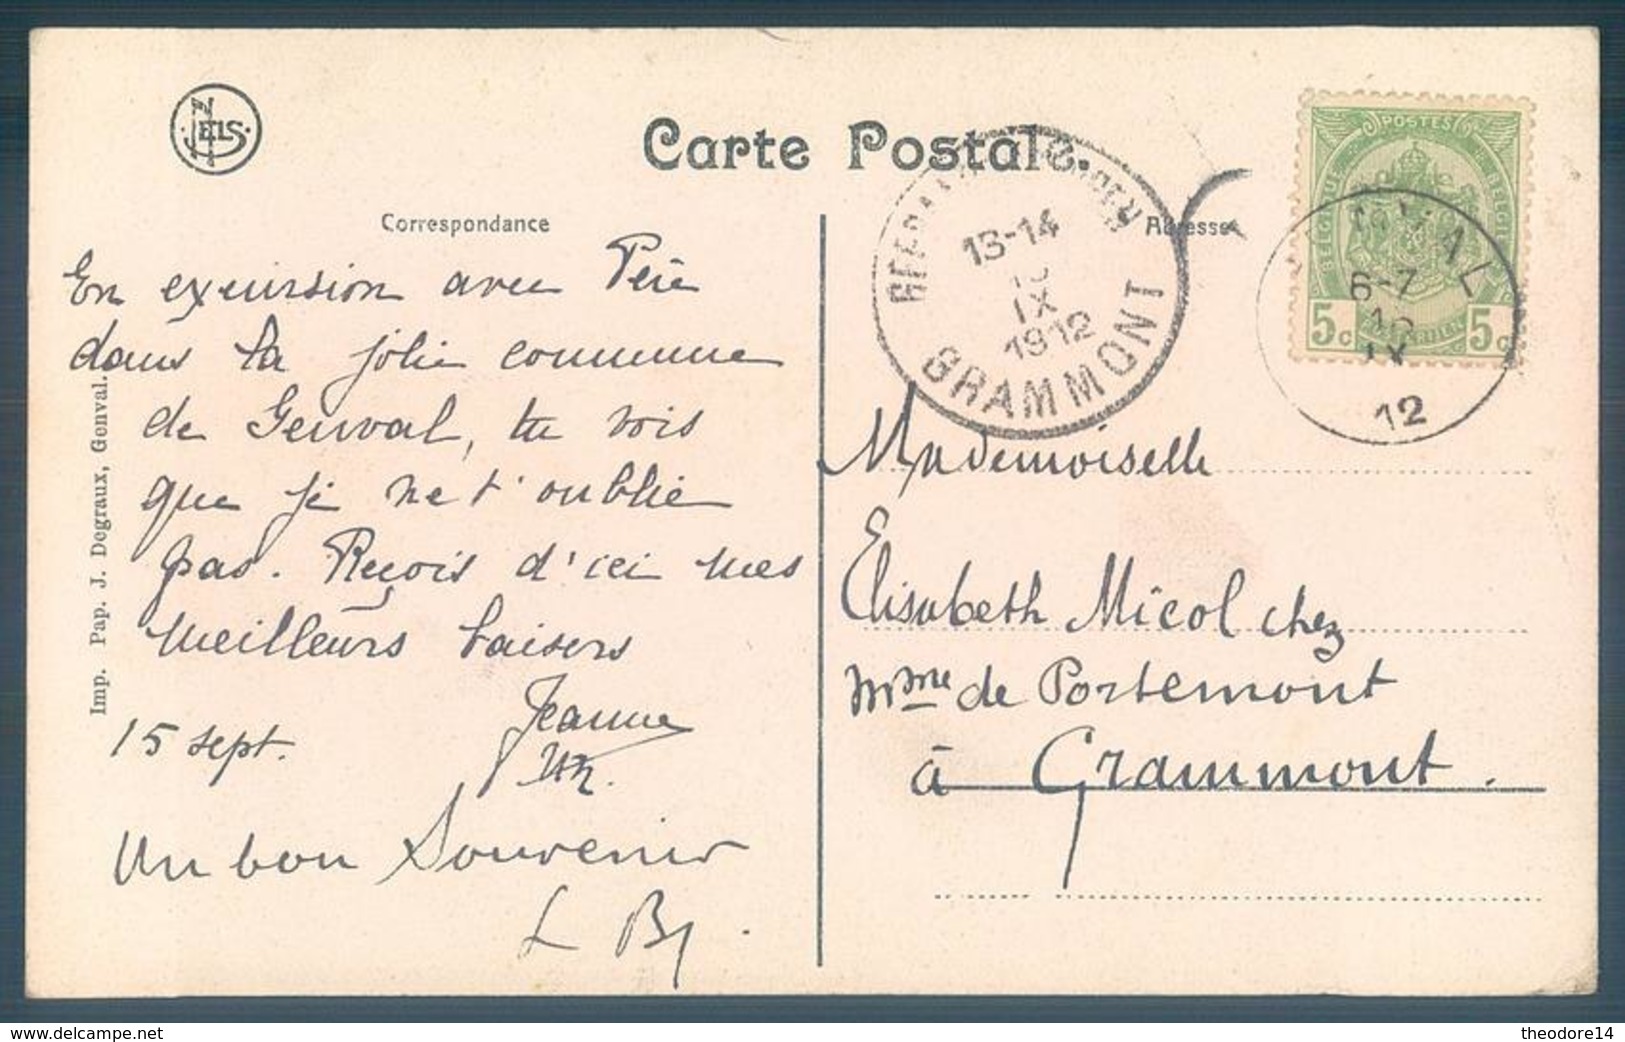 NELS
Carte Postale.
Correspondance
Adresse
POSTES
BELGIQUE
BELGIË
5c
5c
13-14
IX
1912
GRAMMONT
6-7
12
En excursion avec Père
dans la jolie commune
de Genval, tu vois
que je ne t'oublie
pas. Reçois d'ici mes
meilleurs baisers
Jeanne
15 sept.
Un bon Souvenir
Mademoiselle
Elisabeth Micol chez
Mme de Portemont
à Grammont.
Imp. Pap. J. Degraux, Genval.
delcampe.net
theodore14